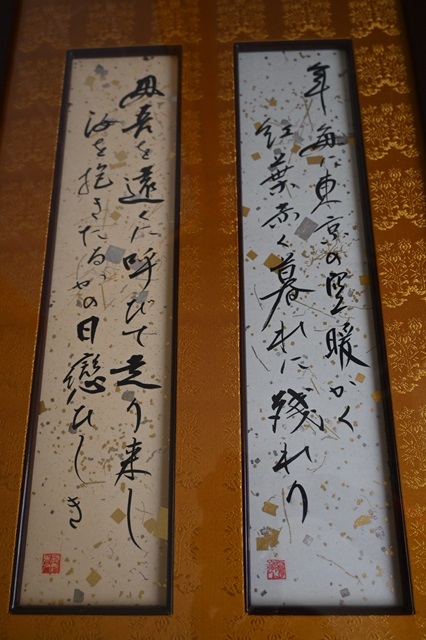 年毎に東京の空暖かく
紅葉赤く暮れに残れり
母吾を遠くに呼びて走り来し
汝を抱きたるかの日戀ひしき